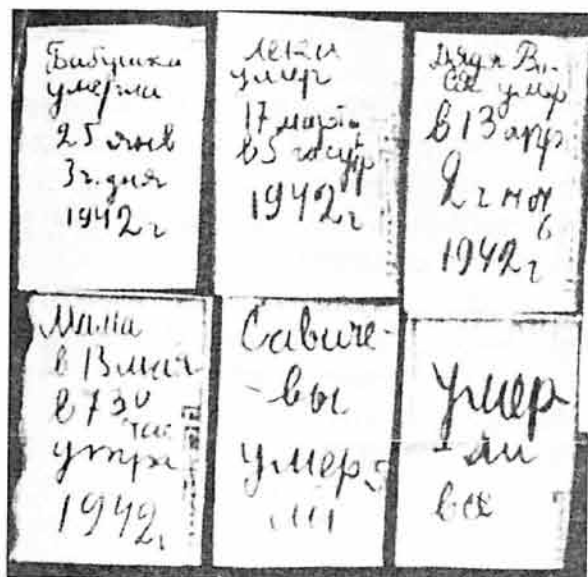 Бабушка
умерла
25 янв
3 ч. дня
1942 г
Лека
умер
17 марта
в 5 час утр
1942 г
Дядя Ва
ся умер
в 13 апр
2 ч ноч
1942 г
Мама
в 13 мая
в 7 30
час
утра
1942 г
Савиче-
-вы
умер-
ли
умер
-ли
все